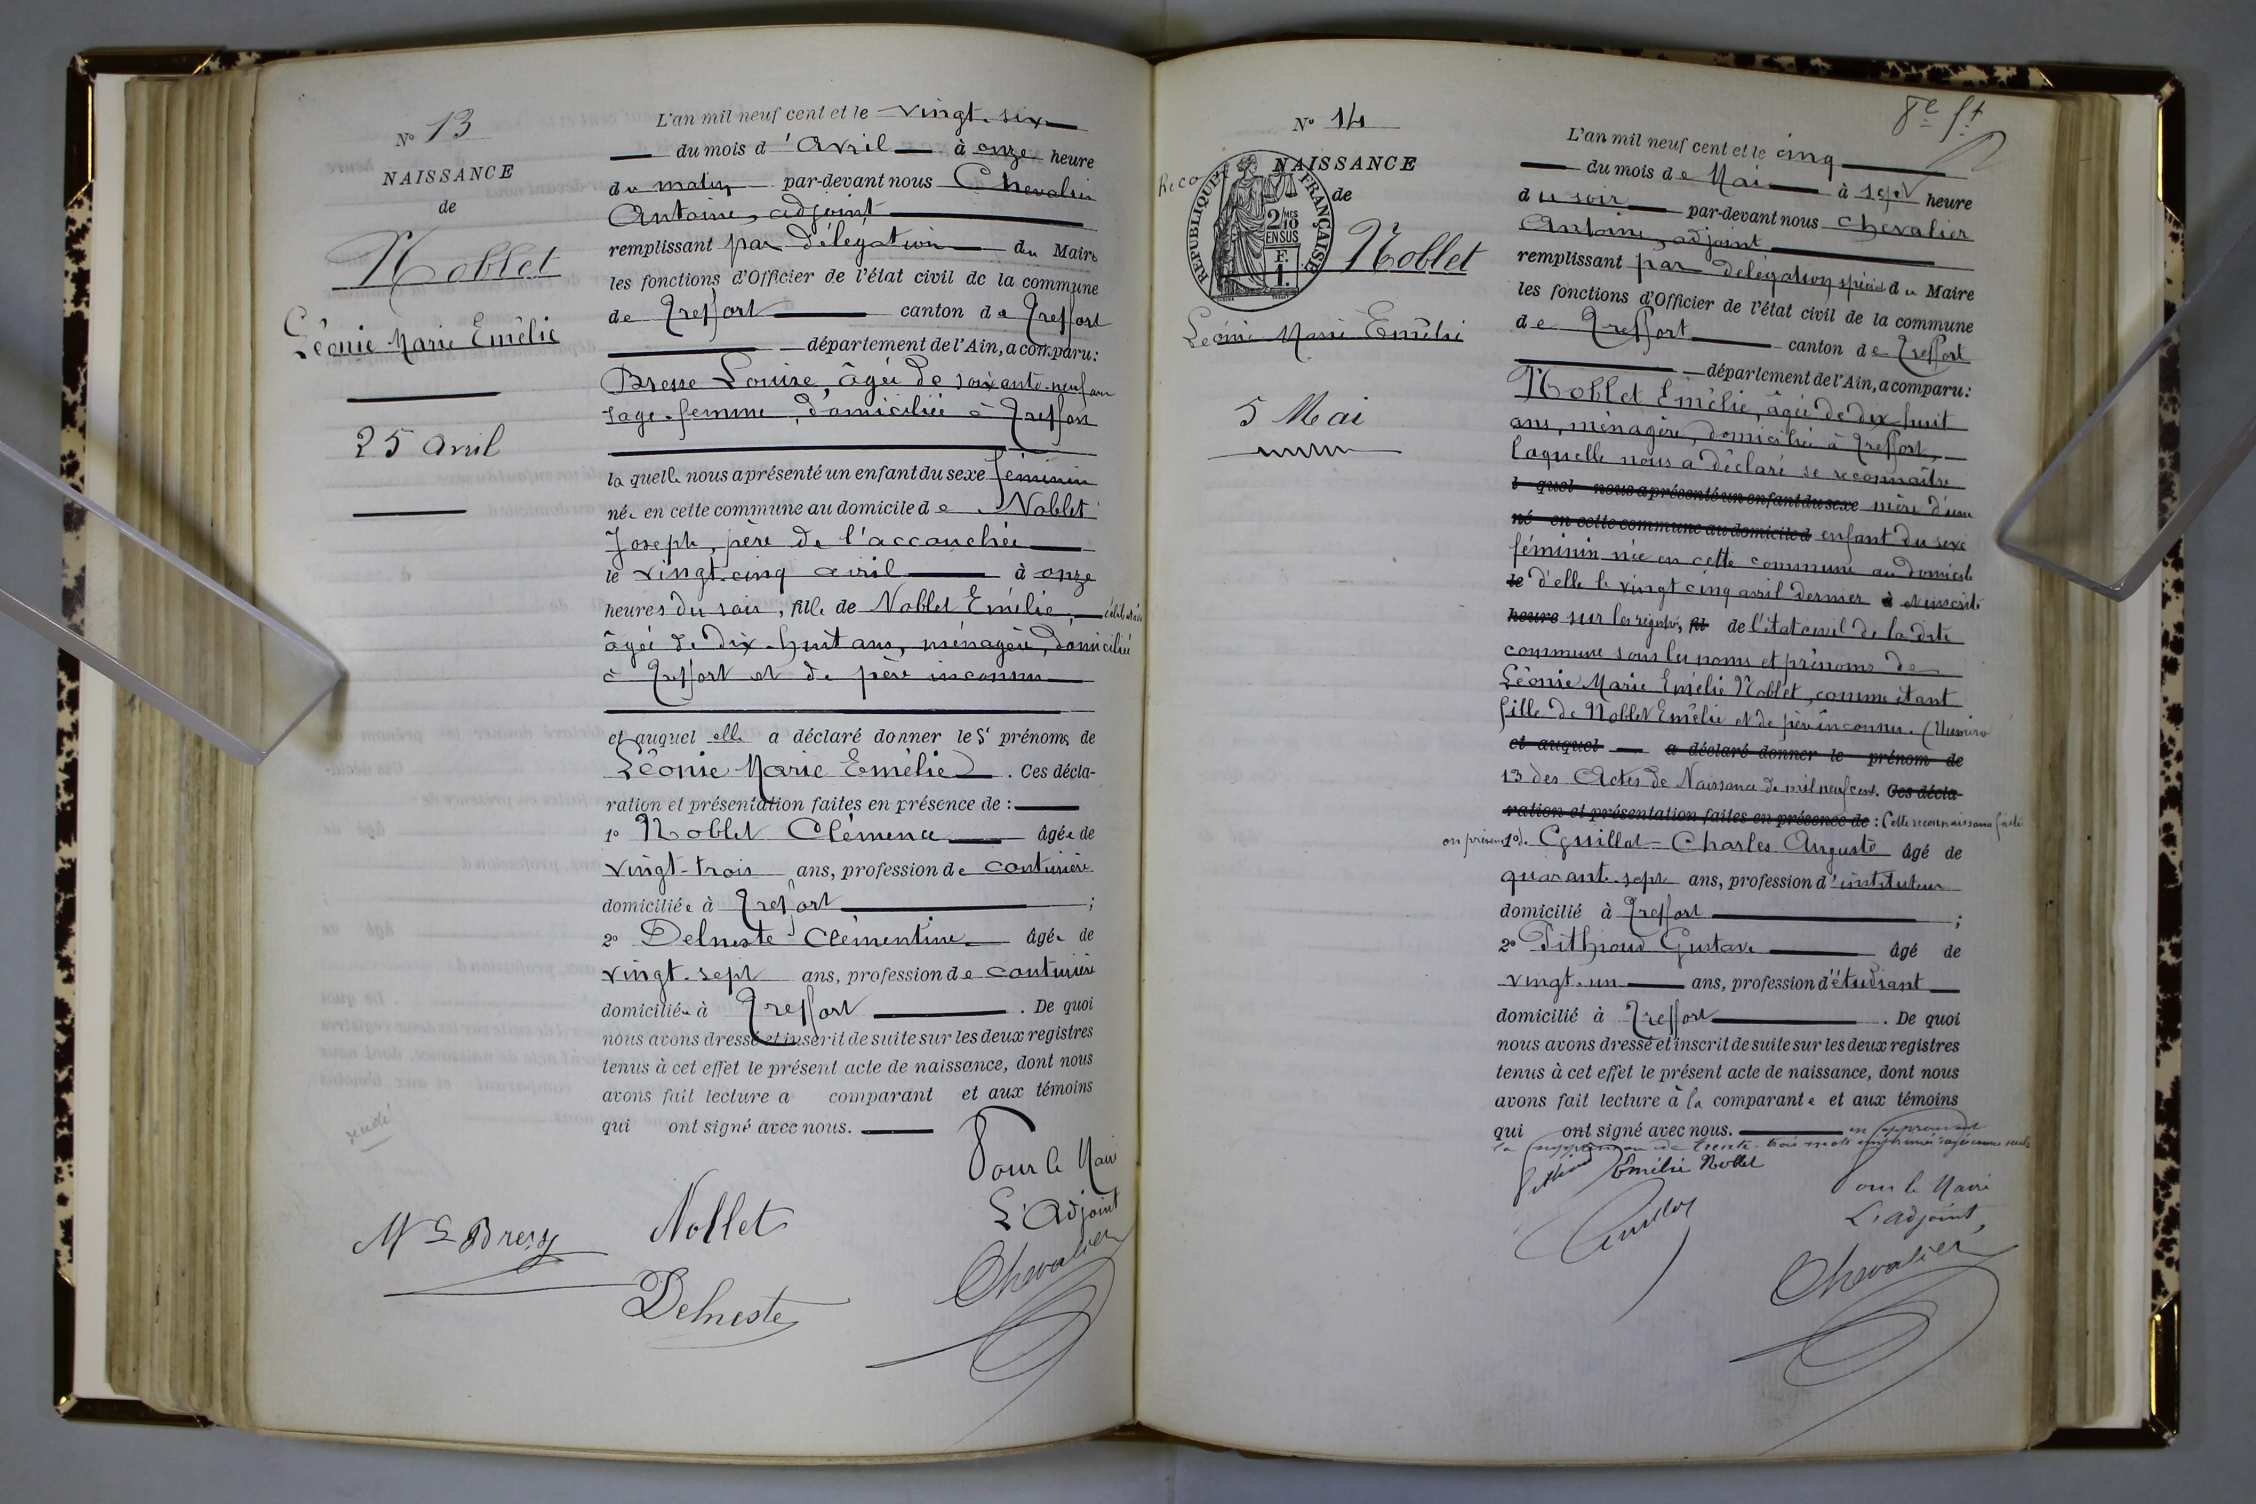 N° 13
NAISSANCE
de
Noblet
Léonie Marie Emélie
25 avril
L'an mil neuf cent et le vingt-six
du mois d'Avril à onze heure
du matin par-devant nous Chevalier
Antoine, adjoint
remplissant par délégation du Maire
les fonctions d'Officier de l'état civil de la commune
de Treffort canton de Treffort
département de l'Ain, a comparu:
Bresse Louise, âgée de soixante-neuf ans
sage-femme, domiciliée à Treffort
laquelle nous a présenté un enfant du sexe féminin
née en cette commune au domicile de Noblet
Joseph, père de l'accouchée
le vingt-cinq avril à onze
heures du soir, fille de Noblet Emélie, célibataire
âgée de dix-huit ans, ménagère, domiciliée
à Treffort et de père inconnu
et auquel elle a déclaré donner les prénoms de
Léonie Marie Emélie. Ces décla-
ration et présentation faites en présence de :
1° Noblet Clémence âgée de
vingt-trois ans, profession de couturière
domiciliée à Treffort ;
2° Delneste Clémentine âgée de
vingt-sept ans, profession de couturière
domiciliée à Treffort. De quoi
nous avons dressé et inscrit de suite sur les deux registres
tenus à cet effet le présent acte de naissance, dont nous
avons fait lecture a comparant et aux témoins
qui ont signé avec nous.
Pour le Maire
L'Adjoint
M L Bresse
Noblet
Chevalier
Delneste
8e ft
N° 14
NAISSANCE
de
Reco
REPUBLIQUE FRANÇAISE
2/10 MES
EN SUS
F.
1.
Noblet
Léonie Marie Emélie
5 Mai
L'an mil neuf cent et le cinq
du mois de Mai à sept heure
du soir par-devant nous Chevalier
Antoine, adjoint
remplissant par délégation spéciale du Maire
les fonctions d'Officier de l'état civil de la commune
de Treffort canton de Treffort
département de l'Ain, a comparu:
Noblet Emélie, âgée de dix-huit
ans, ménagère, domiciliée à Treffort,
laquelle nous a déclaré se reconnaître
l quel nous a présenté un enfant du sexe mère d'un
né en cette commune au domicile d enfant du sexe
féminin née en cette commune au domicile
le d'elle le vingt cinq avril dernier à et inscrite
heure sur les registres fil de l'état civil de la dite
commune sous les noms et prénoms de
Léonie Marie Emélie Noblet, comme étant
fille de Noblet Emélie et de père inconnu. (Numéro
et auquel a déclaré donner le prénom de
13 des Actes de Naissance de mil neuf cent. Ces décla-
ration et présentation faites en présence de : Cette reconnaissance faite
en présence 1° d. Guillot Charles Auguste âgé de
quarante-sept ans, profession d'instituteur
domicilié à Treffort ;
2° Pithioud Gustave âgé de
vingt-un ans, profession d'étudiant
domicilié à Treffort. De quoi
nous avons dressé et inscrit de suite sur les deux registres
tenus à cet effet le présent acte de naissance, dont nous
avons fait lecture à la comparante et aux témoins
qui ont signé avec nous. en approuvant
la suppression de trente-trois mots imprimés rayés comme nuls
Pithioud Emélie Noblet
Pour le Maire
L'adjoint,
Guillot
Chevalier